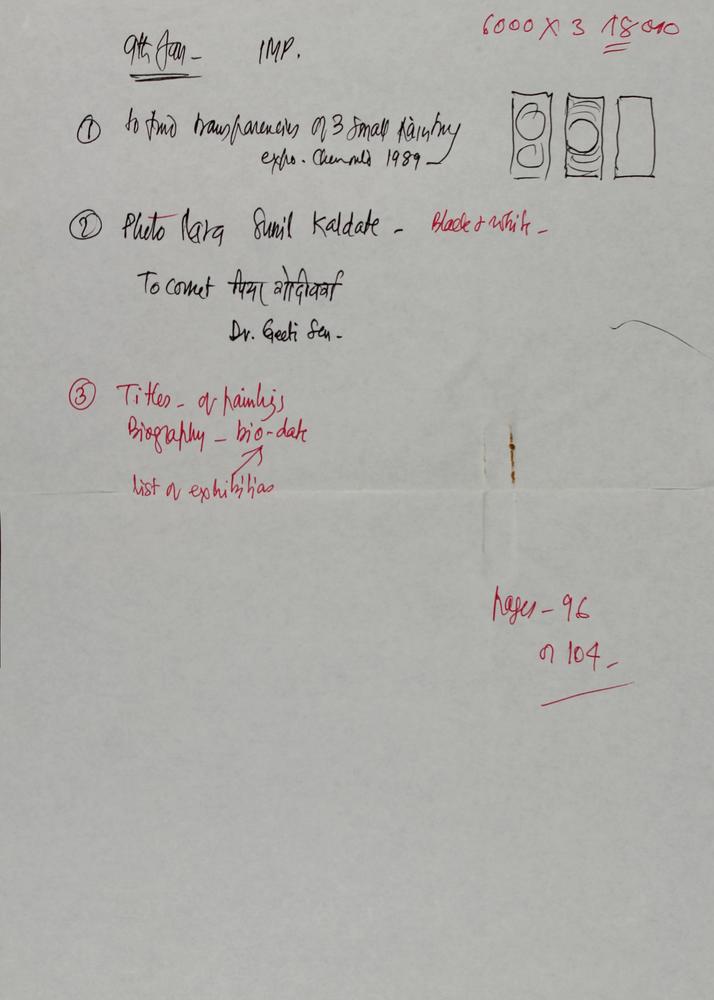 6000 X 3 18000
9th Jan - IMP.
① to find transparencies of 3 small painting
expo. Chemould 1989
② Photo Sunil Kaldate - Black & white -
To
Dr. Geeti Sen -
③ Titles - of paintings
Biography - bio-date
list of exhibitions
pages - 96
or 104 -